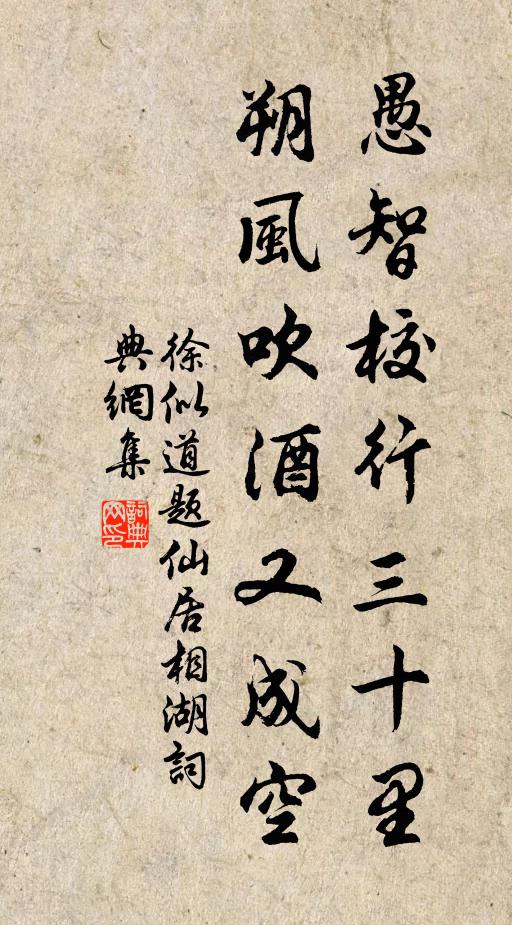 愚智校行三十里
朔風吹酒又成空
徐似道題仙居相湖詞
典網集
詞典網印